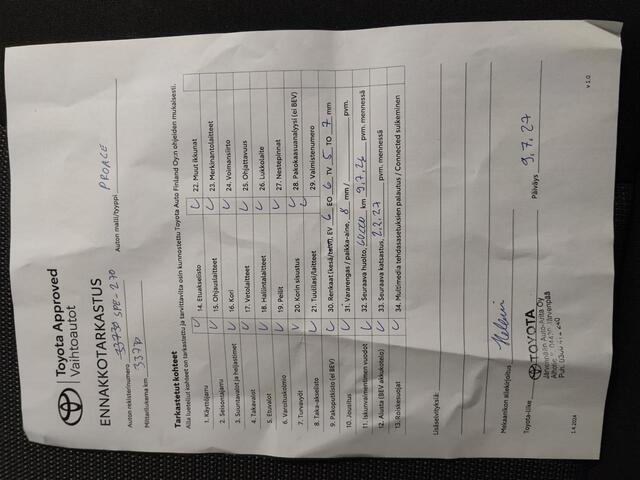 Toyota Approved
Vaihtoautot
ENNAKKOTARKASTUS
Auton rekisterinumero SPE-270
Auton malli/tyyppi PROACE
Mittarilukema km
Tarkastetut kohteet
Alla luetellut kohteet on tarkastettu ja tarvittavilta osin kunnostettu Toyota Auto Finland Oy:n ohjeiden mukaisesti.
1. Käyttöjarru
2. Seisontajarru
3. Suuntavalot ja heijastimet
4. Takavalot
5. Etuvalot
6. Varoituskolmio
7. Turvavyöt
8. Taka-akselisto
9. Pakoputkisto (ei BEV)
10. Jousitus
11. Iskunvaimentimien vuodot
12. Alusta (BEV akkukotelo)
13. Roiskesuojat
14. Etuakselisto
15. Ohjauslaitteet
16. Kori
17. Vetolaitteet
18. Hallintalaitteet
19. Peilit
20. Korin sisustus
21. Tuulilasi/laitteet
22. Muut ikkunat
23. Merkinantolaitteet
24. Voimansiirto
25. Ohjattavuus
26. Lukkolaite
27. Nestepinnat
28. Pakokaasuanalyysi (ei BEV)
29. Valmistenumero
30. Renkaat (kesä/talvi), EV 6 EO 6 TV 5 TO 7 mm
31. Vararengas / paikka-aine, 8 mm / pvm.
32. Seuraava huolto, km pvm. mennessä
33. Seuraava katsastus, 2.2.27 pvm. mennessä
34. Multimedia tehdasasetuksien palautus / Connected sulkeminen
Lisäselvityksiä:
Mekaanikon allekirjoitus
Päiväys 9.7.27
Toyota-liike
TOYOTA
Järvenpään Auto-Arita Oy
1.4.2024
v 1.0